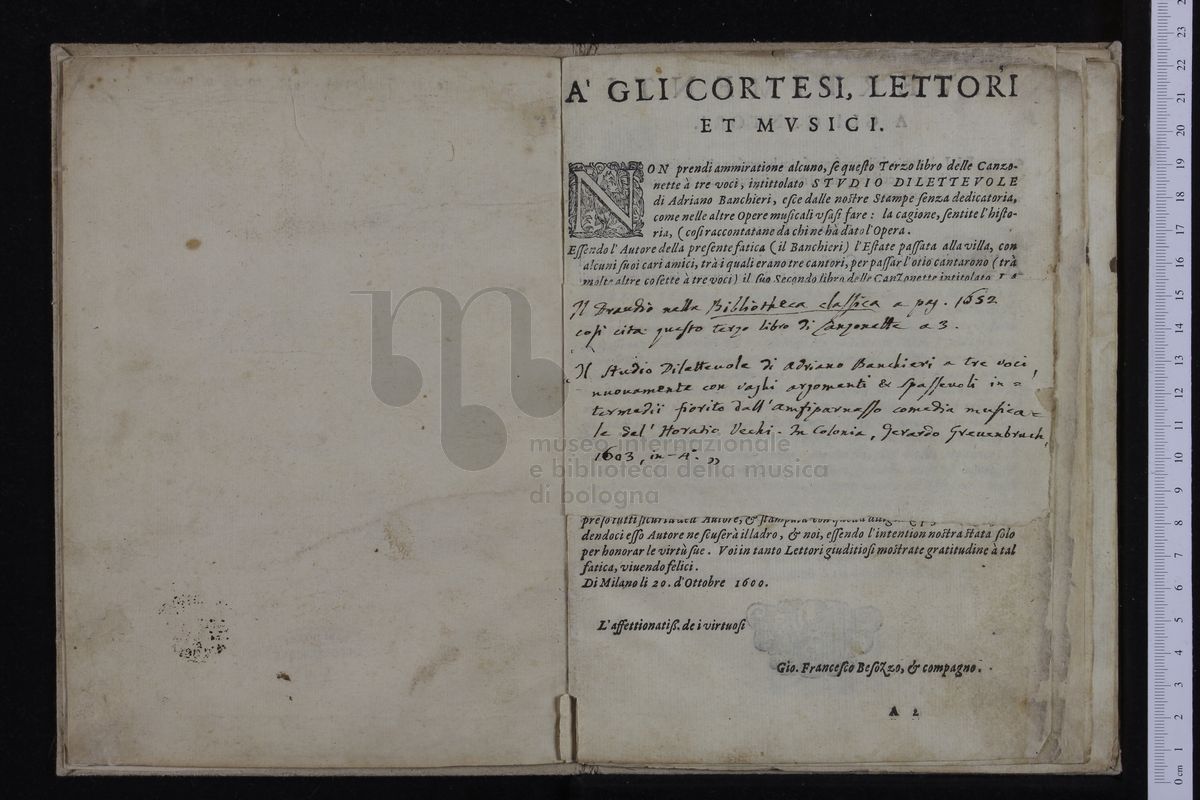 A' GLI CORTESI, LETTORI
ET MVSICI.
NON prendi ammiratione alcuno, se questo Terzo libro delle Canzo-
nette à tre voci, intittolato STVDIO DILETTEVOLE
di Adriano Banchieri, esce dalle nostre Stampe senza dedicatoria,
come nelle altre Opere musicali vsasi fare: la cagione, sentite l'histo-
ria, (cosi raccontatane da chi ne hà dato l'Opera.
Essendo l'Autore della presente fatica (il Banchieri) l'Estate passata alla villa, con
alcuni suoi cari amici, trà i quali erano tre cantori, per passar l'otio cantarono (trà
molte altre cosette à tre voci) il suo Secondo libro delle Canzonette intitolato
Il Draudio nella Bibliotheca classica a pag. 1652
cosi cita questo terzo libro di Canzonette a 3.
Il Studio Dilettevole di Adriano Banchieri a tre voci
nuovamente con vaghi argomenti & spassevoli in=
termedii fiorito dall'Amfiparnasso comedia musica=
le del' Horatio Vechi. In Colonia, Gerardo Grevenbruch,
1603, in-4°. „
preso tutti
dendoci esso Autore ne scuserà il ladro, & noi, essendo l'intention nostra stata solo
per honorar le virtù sue. Voi in tanto Lettori giuditiosi mostrate gratitudine à tal
fatica, viuendo felici.
Di Milano li 20. d'Ottobre 1600.
L'affettionatiss. de i virtuosi
Gio. Francesco Besozzo, & compagno.
A 2
museo internazionale
e biblioteca della musica
di bologna
0 cm 1 2 3 4 5 6 7 8 9 10 11 12 13 14 15 16 17 18 19 20 21 22 23